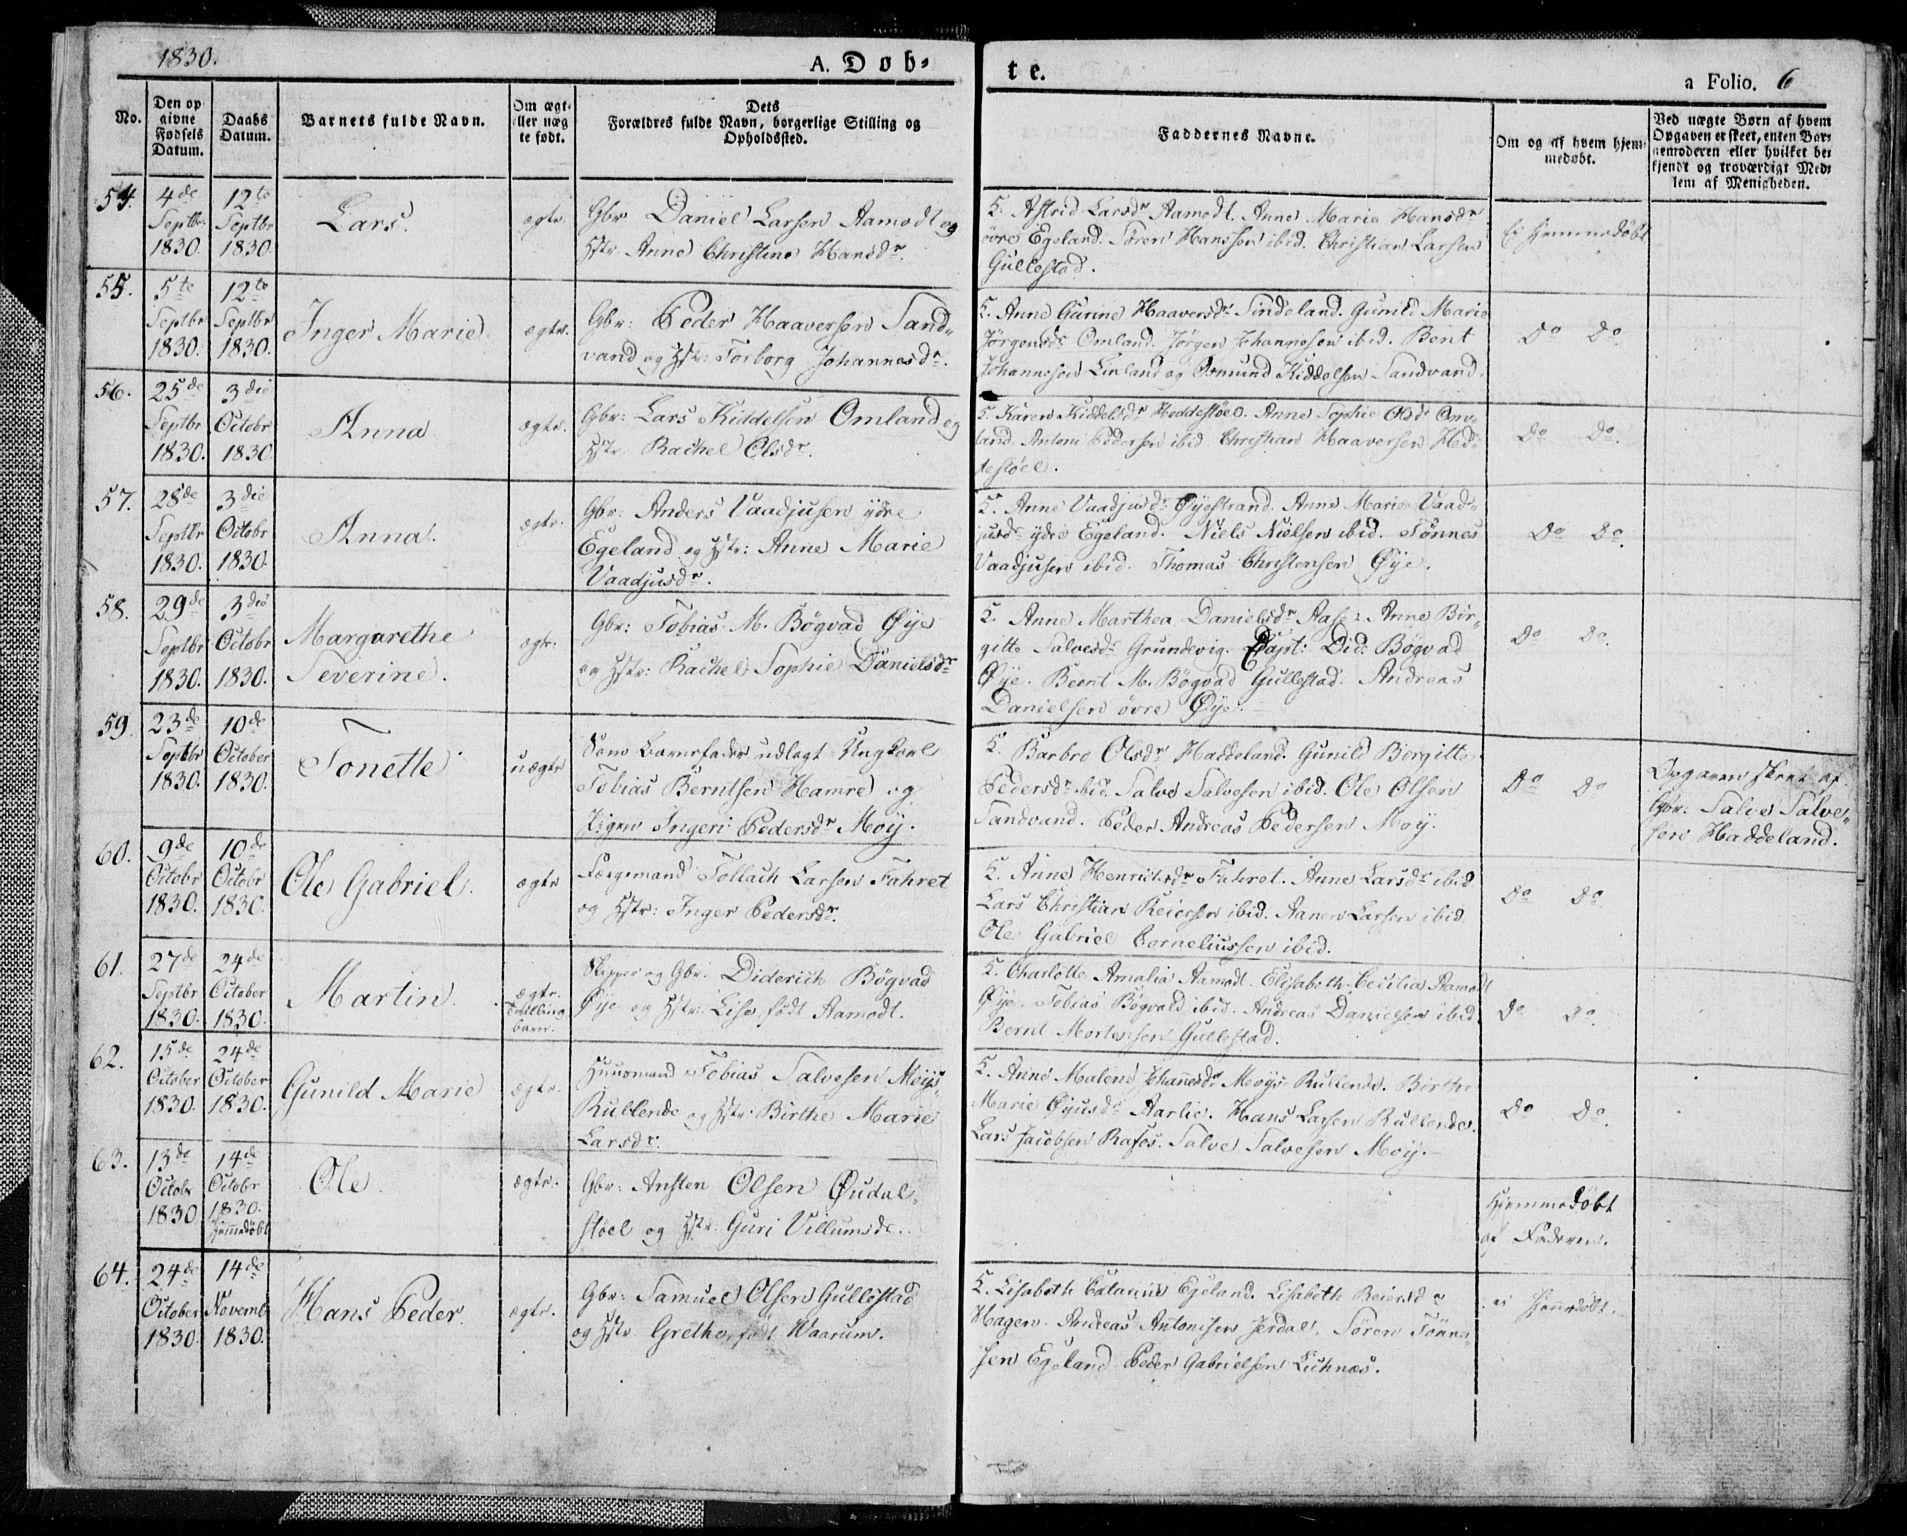 1830.
A. Døb-
te.
a Folio. 6
No.
Den op
givne
Fødsels
Datum.
Daabs
Datum.
Barnets fulde Navn.
Om ægt-
eller uæg
te født.
Dets
Forældres fulde Navn, borgerlige Stilling og
Opholdssted.
Faddernes Navne.
Om og af hvem hjem-
medøbt.
Ved uægte Børn af hvem
Opgaven er skeet, enten Bar-
nemoderen eller hvilket be-
kjendt og troværdigt Med-
lem af Menigheden.
54.
4de
Septbr
1830
12te
Septbr
1830.
Lars.
ægte.
Gbr Daniel Larsen Aamodt og
Hstr. Anne Christine Hansdr.
F. Astrid Larsdr Aamodt. Anne Marie Hansdr
øvre Egeland. Søren Hanssen ibid. Christian Larsen
Gullestad.
Ei hjemmedøbt
55.
5te
Septbr
1830.
12te
Septbr
1830.
Inger Marie.
ægte.
Gbr: Peder Haaversen Sand-
vand og Hstr: Torborg Johannesdr.
F. Anne Gurine Haaversdr Sindeland. Gunild Marie
Jørgensdr Omland. Jørgen Johannesen ibid. Berit
Johannesen Linland og Osmund Kiddelsen Sandvand.
Do Do
56.
25de
Septbr
1830.
3die
Octobr
1830
Anna
ægte.
Gbr: Lars Kiddelsen Omland og
Hstr. Rachel Olsdr.
F. Karen Kiddelsdr Heddestøel. Anne Sophie Olsdr Om-
land. Antoni Pedersen ibid. Christian Haaversen Hed-
destøel.
Do Do.
57.
28de
Septbr
1830.
3die
Octobr
1830.
Anna.
ægte.
Gbr: Anders Vaadjusen ydre
Egeland og Hstr: Anne Marie
Vaadjusdr.
F. Anne Vaadjusdr Øyestrand. Anne Marie Vaad-
jusdr ydre Egeland. Niels Nielsen ibid. Tønnes
Vaadjusen ibid. Thomas Christensen Øye.
Do Do.
58.
29de
Septbr
1830.
3die
Octobr
1830.
Margarethe
Severine.
ægte.
Gbr: Tobias M. Bøgvad Øye
og Hstr: Rachel Sophie Danielsdr
F. Anne Marthea Danielsdr Aase. Anne Bir-
gitte Salvesdr Grundevig. Capt: Did: Bøgvad
Øye. Bernt M. Bøgvad Gullestad. Andreas
Danielsen øvre Øye.
Do Do.
59.
23de
Septbr
1830.
10de
October
1830.
Tonette
uægte
Som Barnefader udlagt Ungkarl
Tobias Berntsen Hamre og
Pigen Ingeri Pedersdr Moy.
F. Barbro Olsdr Haddeland. Gunild Bergitte
Pedersdr ibid. Salve Salvesen ibid. Ole Olsen
Sandvand. Peder Andreas Pedersen Moy.
Do Do
Opgaven skeet af
Gbr: Salve Salve-
sen Haddeland.
60.
9de
Octobr
1830.
10de
Octobr
1830.
Ole Gabriel.
ægte
Færgemand Tollach Larsen Fahret
og Hstr: Inger Pedersdr.
F. Anne Henrichsdr Fahret. Anne Larsdr ibid
Lars Christian Reiersen ibid. Aanen Larsen ibid.
Ole Gabriel Corneliussen ibid.
Do Do.
61.
27de
Septbr
1830.
24de
October
1830.
Martin.
ægte.
Tvilling
barn.
Skipper og Gbr. Diderich Bøgvad
Øye og Hstr: Lise født Aamodt.
F. Charlotte Amalia Aamodt. Elisabeth Cecilia Aamodt
Øye. Tobias Bøgvald ibid. Andreas Danielsen ibid.
Bernt Mortensen Gullestad.
Do Do.
62.
15de
October
1830.
24de
October
1830.
Gunild Marie
ægte.
Huusmand Tobias Salvesen Moys-
Rullende og Hstr: Birthe Marie
Larsdr.
F. Anne Malene Johannesdr Moys Rullende. Birthe
Marie Øyusdr Aarlie. Hans Larsen Rullende.
Lars Jacobsen Rafos. Salve Salvesen Moy.
Do Do.
63.
13de
Octobr
1830
14de
Octobr
1830.
hjemmedøbt
Ole
ægte.
Gbr: Ansten Olsen Øudal-
støel og Hstr: Guri Villumsdr.
Hjemmedøbt
af Faderen.
64.
24de
October
1830.
14de
Novembr
1830.
Hans Peder.
ægte.
Gbr: Samuel Olsen Gullestad
og Hstr Grethe født Waarum.
F. Lisabeth Catarine Egeland. Lisabeth Reiersdr
Hagen. Andreas Antonisen Jerdal. Søren Tønne-
sen Egeland. Peder Gabrielsen Lichnæs.
ei hjemmedøbt.